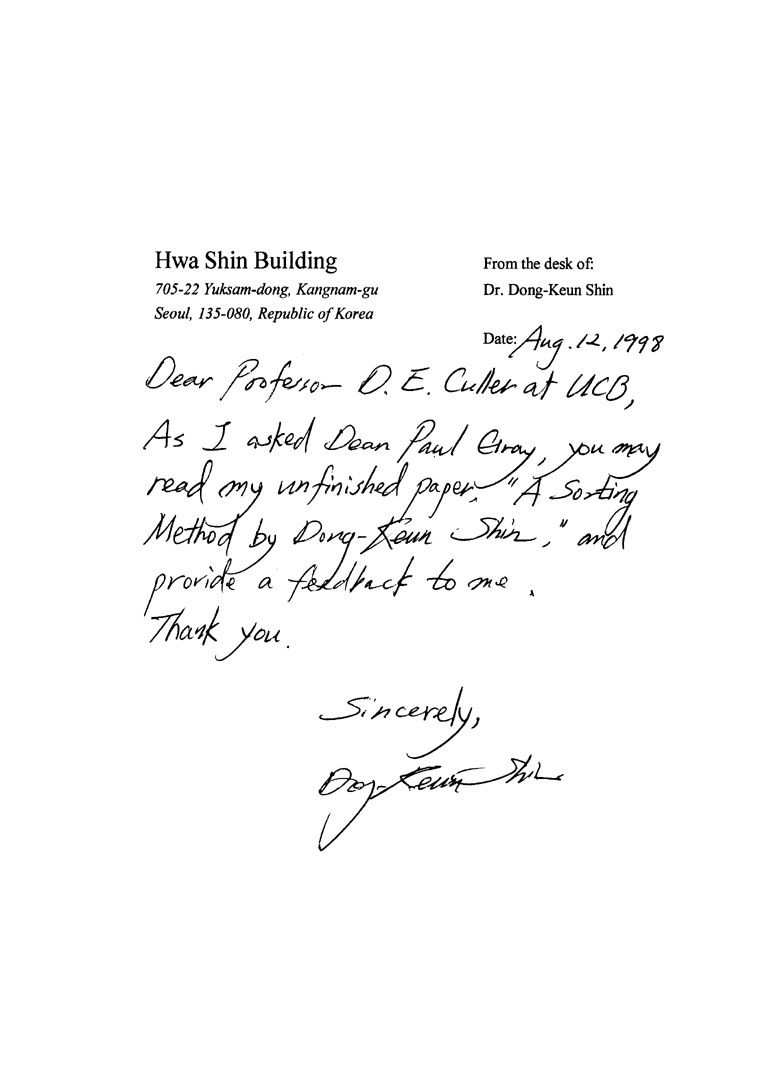 Hwa Shin Building
705-22 Yuksam-dong, Kangnam-gu
Seoul, 135-080, Republic of Korea
From the desk of:
Dr. Dong-Keun Shin
Date: Aug. 12, 1998
Dear Professor D. E. Culler at UCB,
As I asked Dean Paul Gray, you may
read my unfinished paper, "A Sorting
Method by Dong-Keun Shin," and
provide a feedback to me.
Thank you.
Sincerely,
Dong-Keun Shin